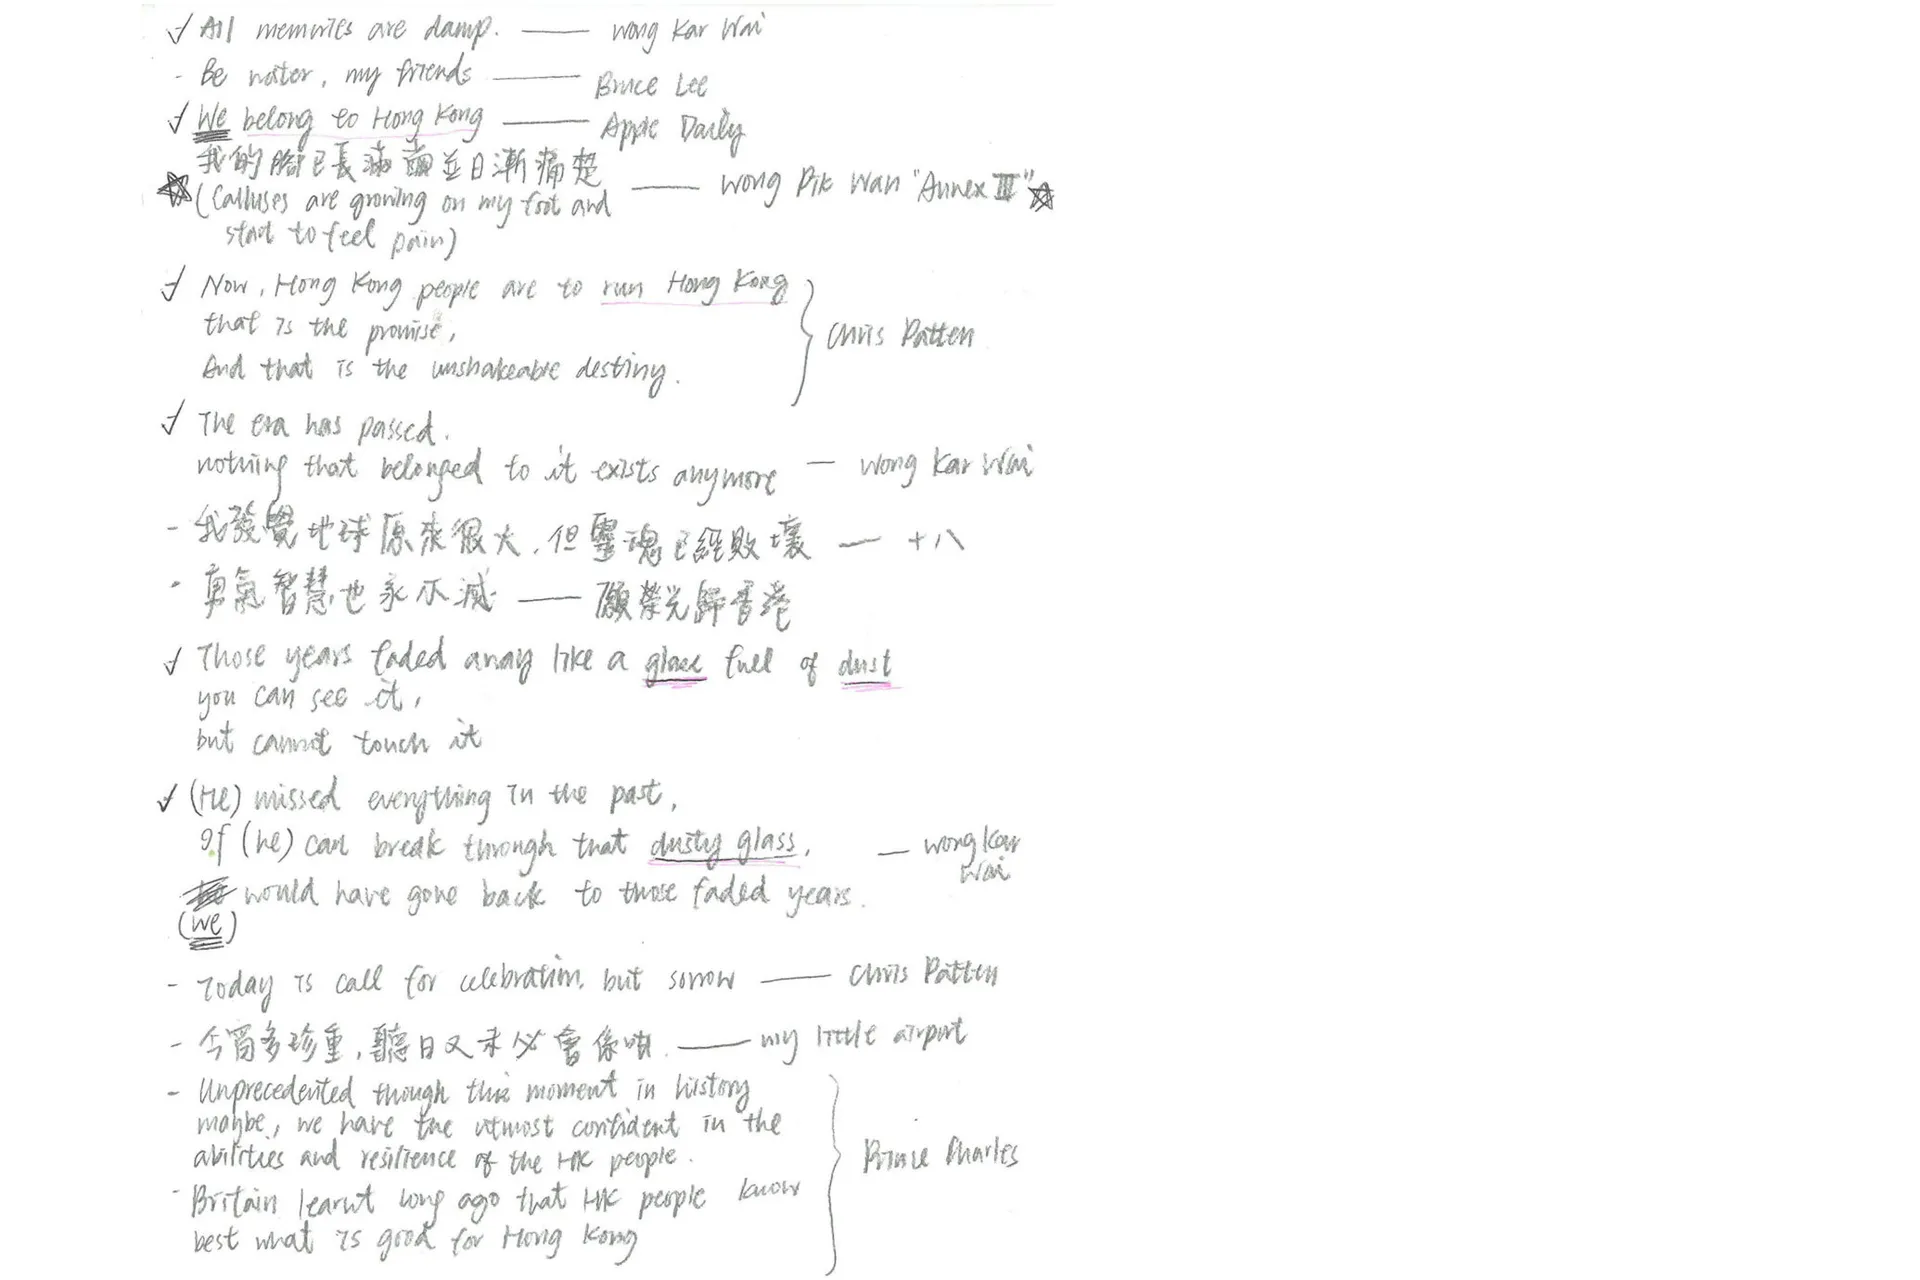 ✓ All memories are damp. —— Wong Kar Wai
- Be water, my friends —— Bruce Lee
✓ We belong to Hong Kong —— Apple Daily
我的腳已長滿繭並日漸痛楚
(Calluses are growing on my foot and —— Wong Pik Wan "Annex III"
start to feel pain)
✓ Now, Hong Kong people are to run Hong Kong
that is the promise,
And that is the unshakeable destiny.
Chris Patten
✓ The era has passed.
nothing that belonged to it exists anymore — Wong Kar Wai
- 我發覺地球原來很大,但靈魂已經敗壞 — 十八
- 勇氣智慧也永不滅 —— 願榮光歸香港
✓ Those years faded away like a glass full of dust
you can see it,
but cannot touch it
✓ (He) missed everything in the past,
If (he) can break through that dusty glass, — Wong Kar Wai
would have gone back to those faded years.
(we)
- Today is call for celebration, but sorrow —— Chris Patten
- 今宵多珍重,聽日又未必會係咁. —— my little airport
- Unprecedented though this moment in history
maybe, we have the utmost confident in the
abilities and resilience of the HK people.
- Britain learnt long ago that HK people know
best what is good for Hong Kong
Prince Charles